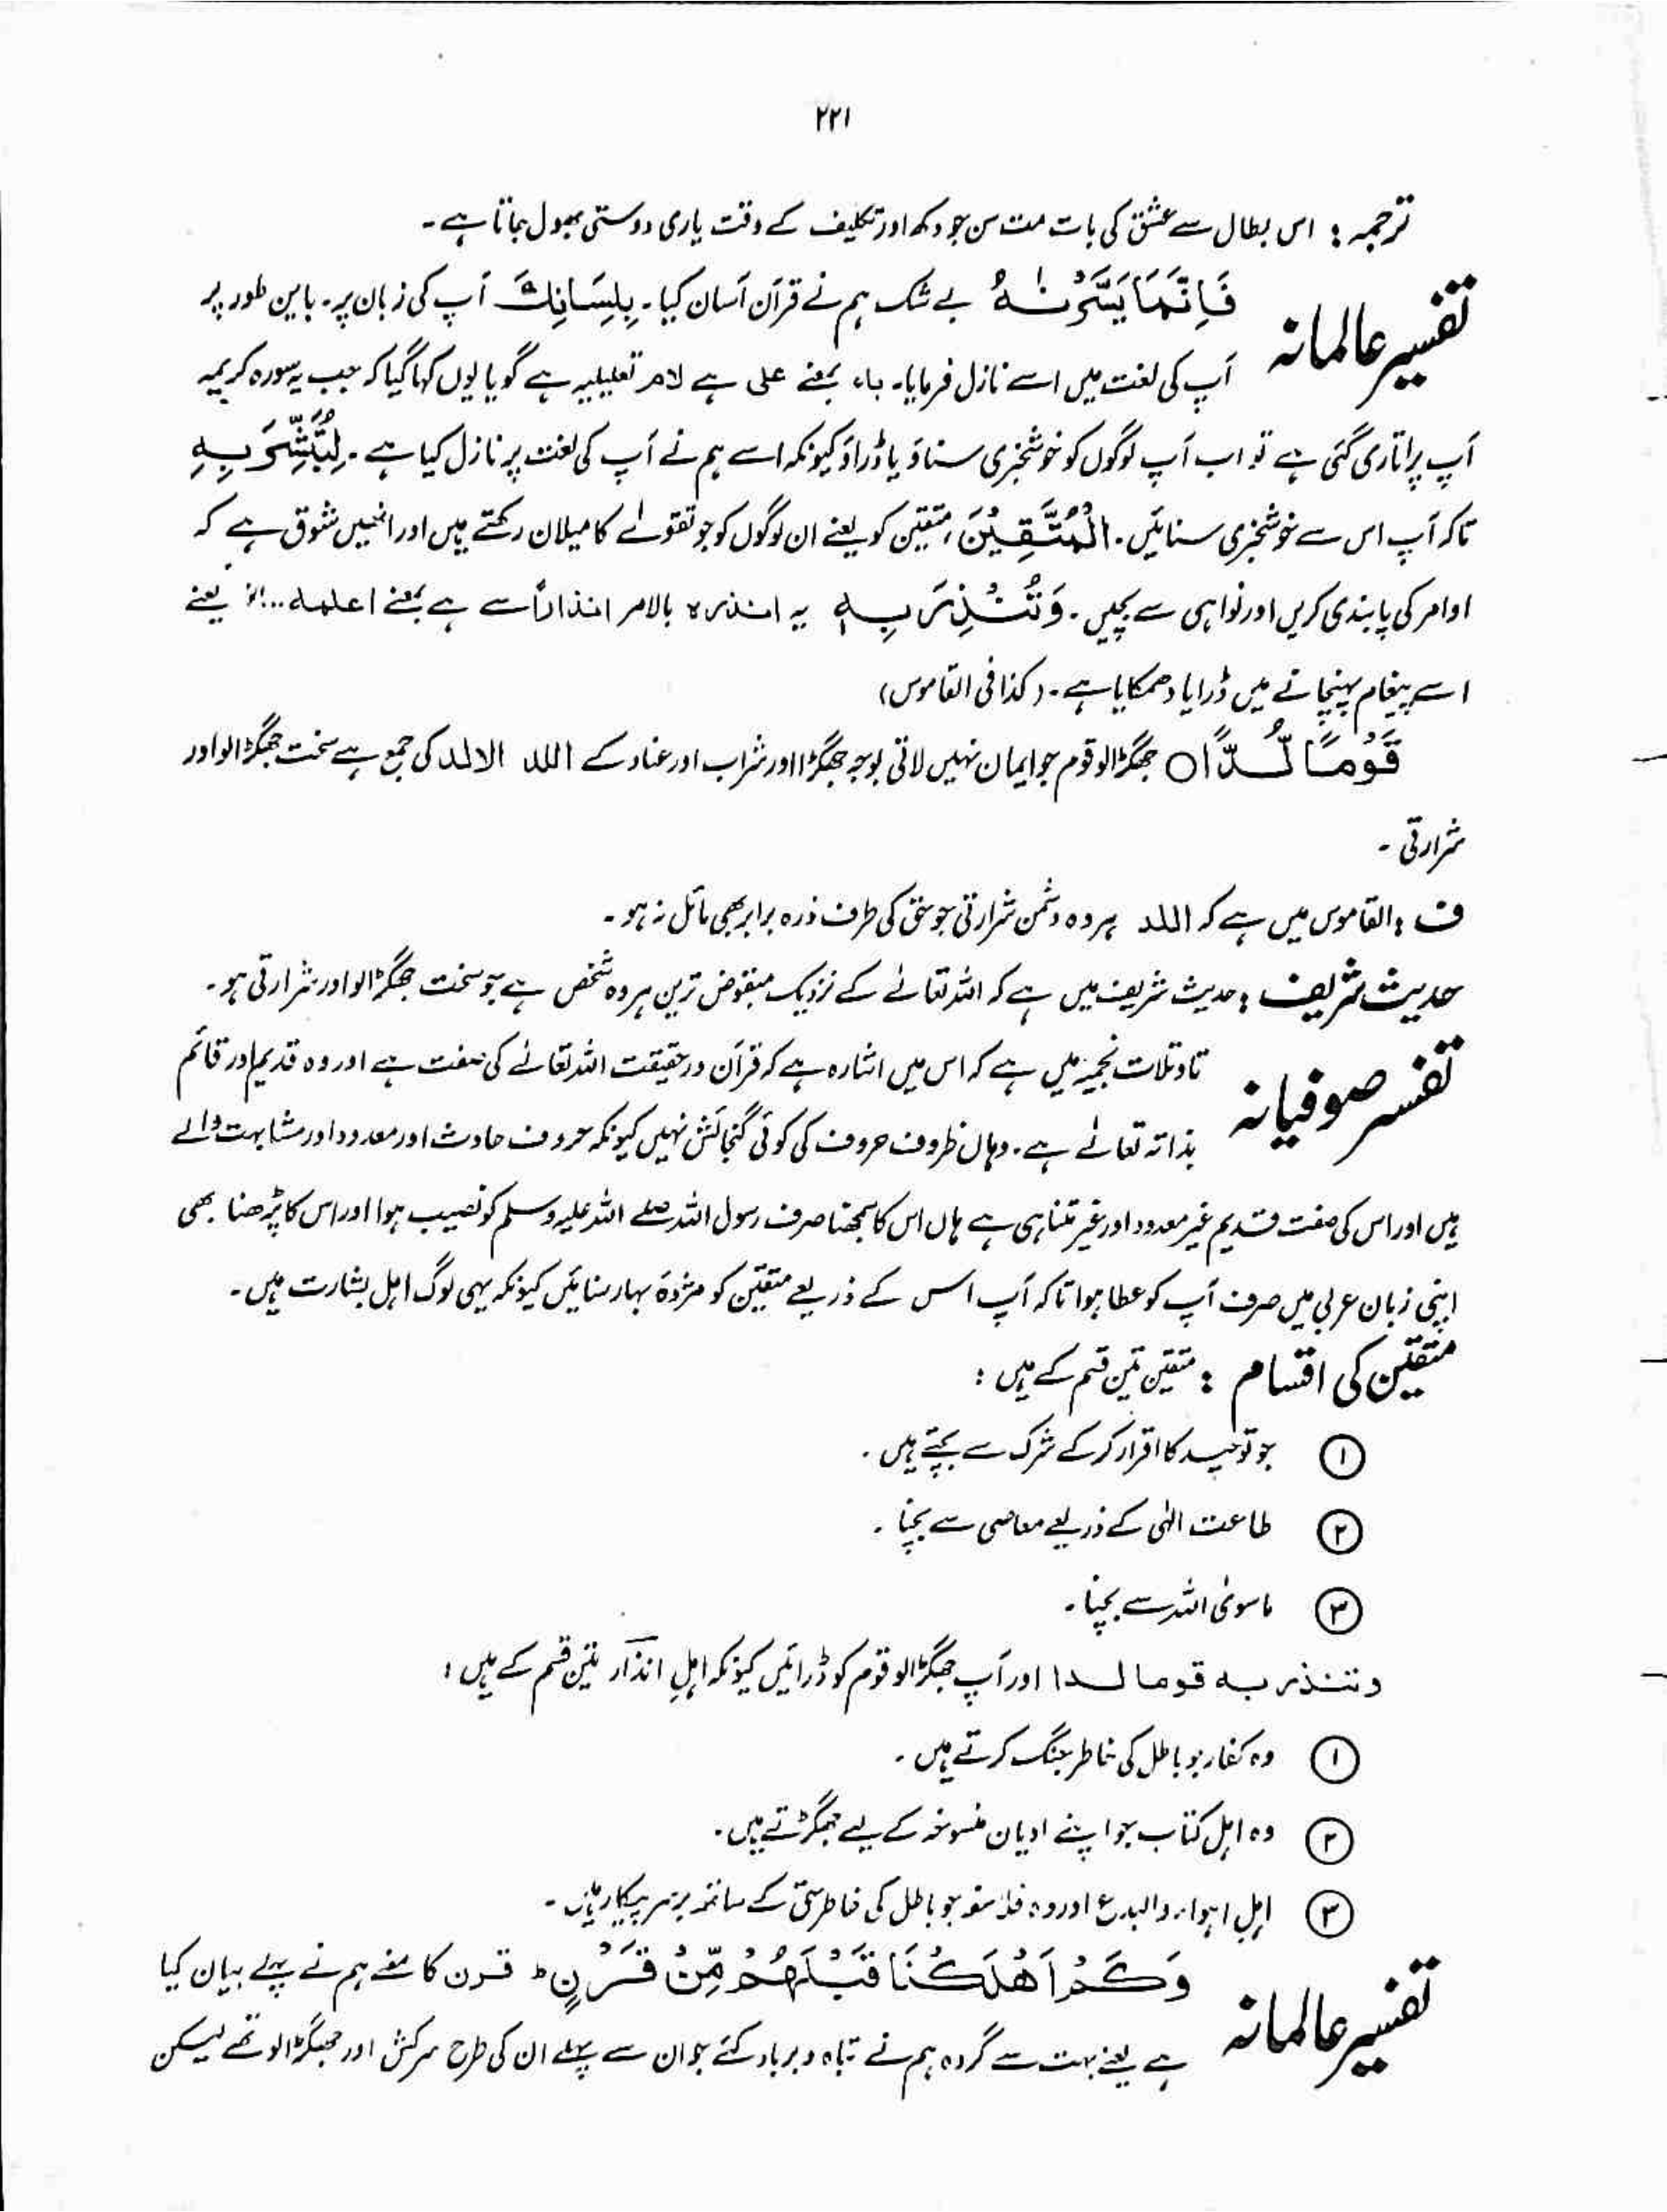 ۲۲۱
ترجمہ : اس بطال سے عشق کی بات مت سن جو دکھ اور تکلیف کے وقت یاری دوستی بھول جاتا ہے۔
تفسیر عالمانہ
فَاِنَّمَا یَسَّرْنٰہُ بے شک ہم نے قرآن آسان کیا۔ بِلِسَانِكَ آپ کی زبان پر۔ باین طور پر
آپ کی لغت میں اسے نازل فرمایا۔ باء بمعنے علی ہے لامر تعلیلیہ ہے گویا یوں کہا گیا کہ جب یہ سورہ کریمہ
آپ پر اتاری گئی ہے تو اب آپ لوگوں کو خوشخبری سناؤ یا ڈراؤ کیونکہ اسے ہم نے آپ کی لغت پر نازل کیا ہے۔ لِتُبَشِّرَ بِهِ
تاکہ آپ اس سے خوشخبری سنائیں۔ الْمُتَّقِیْنَ، متقین کو یعنے ان لوگوں کو جو تقوےٰ کا میلان رکھتے ہیں اور انہیں شوق ہے کہ
اوامر کی پابندی کریں اور نواہی سے بچیں۔ وَتُنْذِرَ بِهٖ یہ انذرہ بالامر انذاراً سے ہے بمعنے اعلمہ...الخ یعنے
اسے پیغام پہنچانے میں ڈرایا دھمکایا ہے۔ (کذا فی القاموس)
قَوْمًا لُّدًّا○ جھگڑالو قوم جو ایمان نہیں لاتی بوجہ جھگڑا اور شراب اور عناد کے اللد الالد کی جمع ہے سخت جھگڑالو اور
شرارتی ۔
ف : القاموس میں ہے کہ اللد ہر وہ دشمن شرارتی جو حق کی طرف ذرہ برابر بھی مائل نہ ہو ۔
حدیث شریف : حدیث شریف میں ہے کہ اللہ تعالےٰ کے نزدیک مبغوض ترین ہر وہ شخص ہے جو سخت جھگڑالو اور شرارتی ہو ۔
تفسر صوفیانہ
تاویلات نجمیہ میں ہے کہ اس میں اشارہ ہے کہ قرآن درحقیقت اللہ تعالےٰ کی صفت ہے اور وہ قدیم اور قائم
بذاتہ تعالےٰ ہے۔ وہاں ظروف حروف کی کوئی گنجائش نہیں کیونکہ حروف حادث اور معدود اور مشابہت والے
ہیں اور اس کی صفت قدیم غیر معدود اور غیر متناہی ہے ہاں اس کا سمجھنا صرف رسول اللہ صلے اللہ علیہ وسلم کو نصیب ہوا اور اس کا پڑھنا بھی
اپنی زبان عربی میں صرف آپ کو عطا ہوا تاکہ آپ اس کے ذریعے متقین کو مژدۂ بہار سنائیں کیونکہ یہی لوگ اہل بشارت ہیں۔
متقین کی اقسام : متقین تین قسم کے ہیں :
① جو توحید کا اقرار کر کے شرک سے بچتے ہیں ۔
② طاعت الٰہی کے ذریعے معاصی سے بچنا ۔
③ ماسوی اللہ سے بچنا ۔
وتنذر بہ قوما لدا اور آپ جھگڑالو قوم کو ڈرائیں کیونکہ اہلِ انذار تین قسم کے ہیں :
① وہ کفار جو باطل کی خاطر جنگ کرتے ہیں ۔
② وہ اہل کتاب جو اپنے ادیان منسوخہ کے لیے جھگڑتے ہیں۔
③ اہلِ اہواء والبدع اور وہ فلاسفہ جو باطل کی خاطر حق کے ساتھ برسرپیکار ہیں ۔
تفسیر عالمانہ
وَكَمْ اَهْلَكْنَا قَبْلَهُمْ مِّنْ قَرْنٍ ط قرن کا معنے ہم نے پہلے بیان کیا
ہے یعنے بہت سے گروہ ہم نے تباہ و برباد کئے جو ان سے پہلے ان کی طرح سرکش اور جھگڑالو تھے لیکن